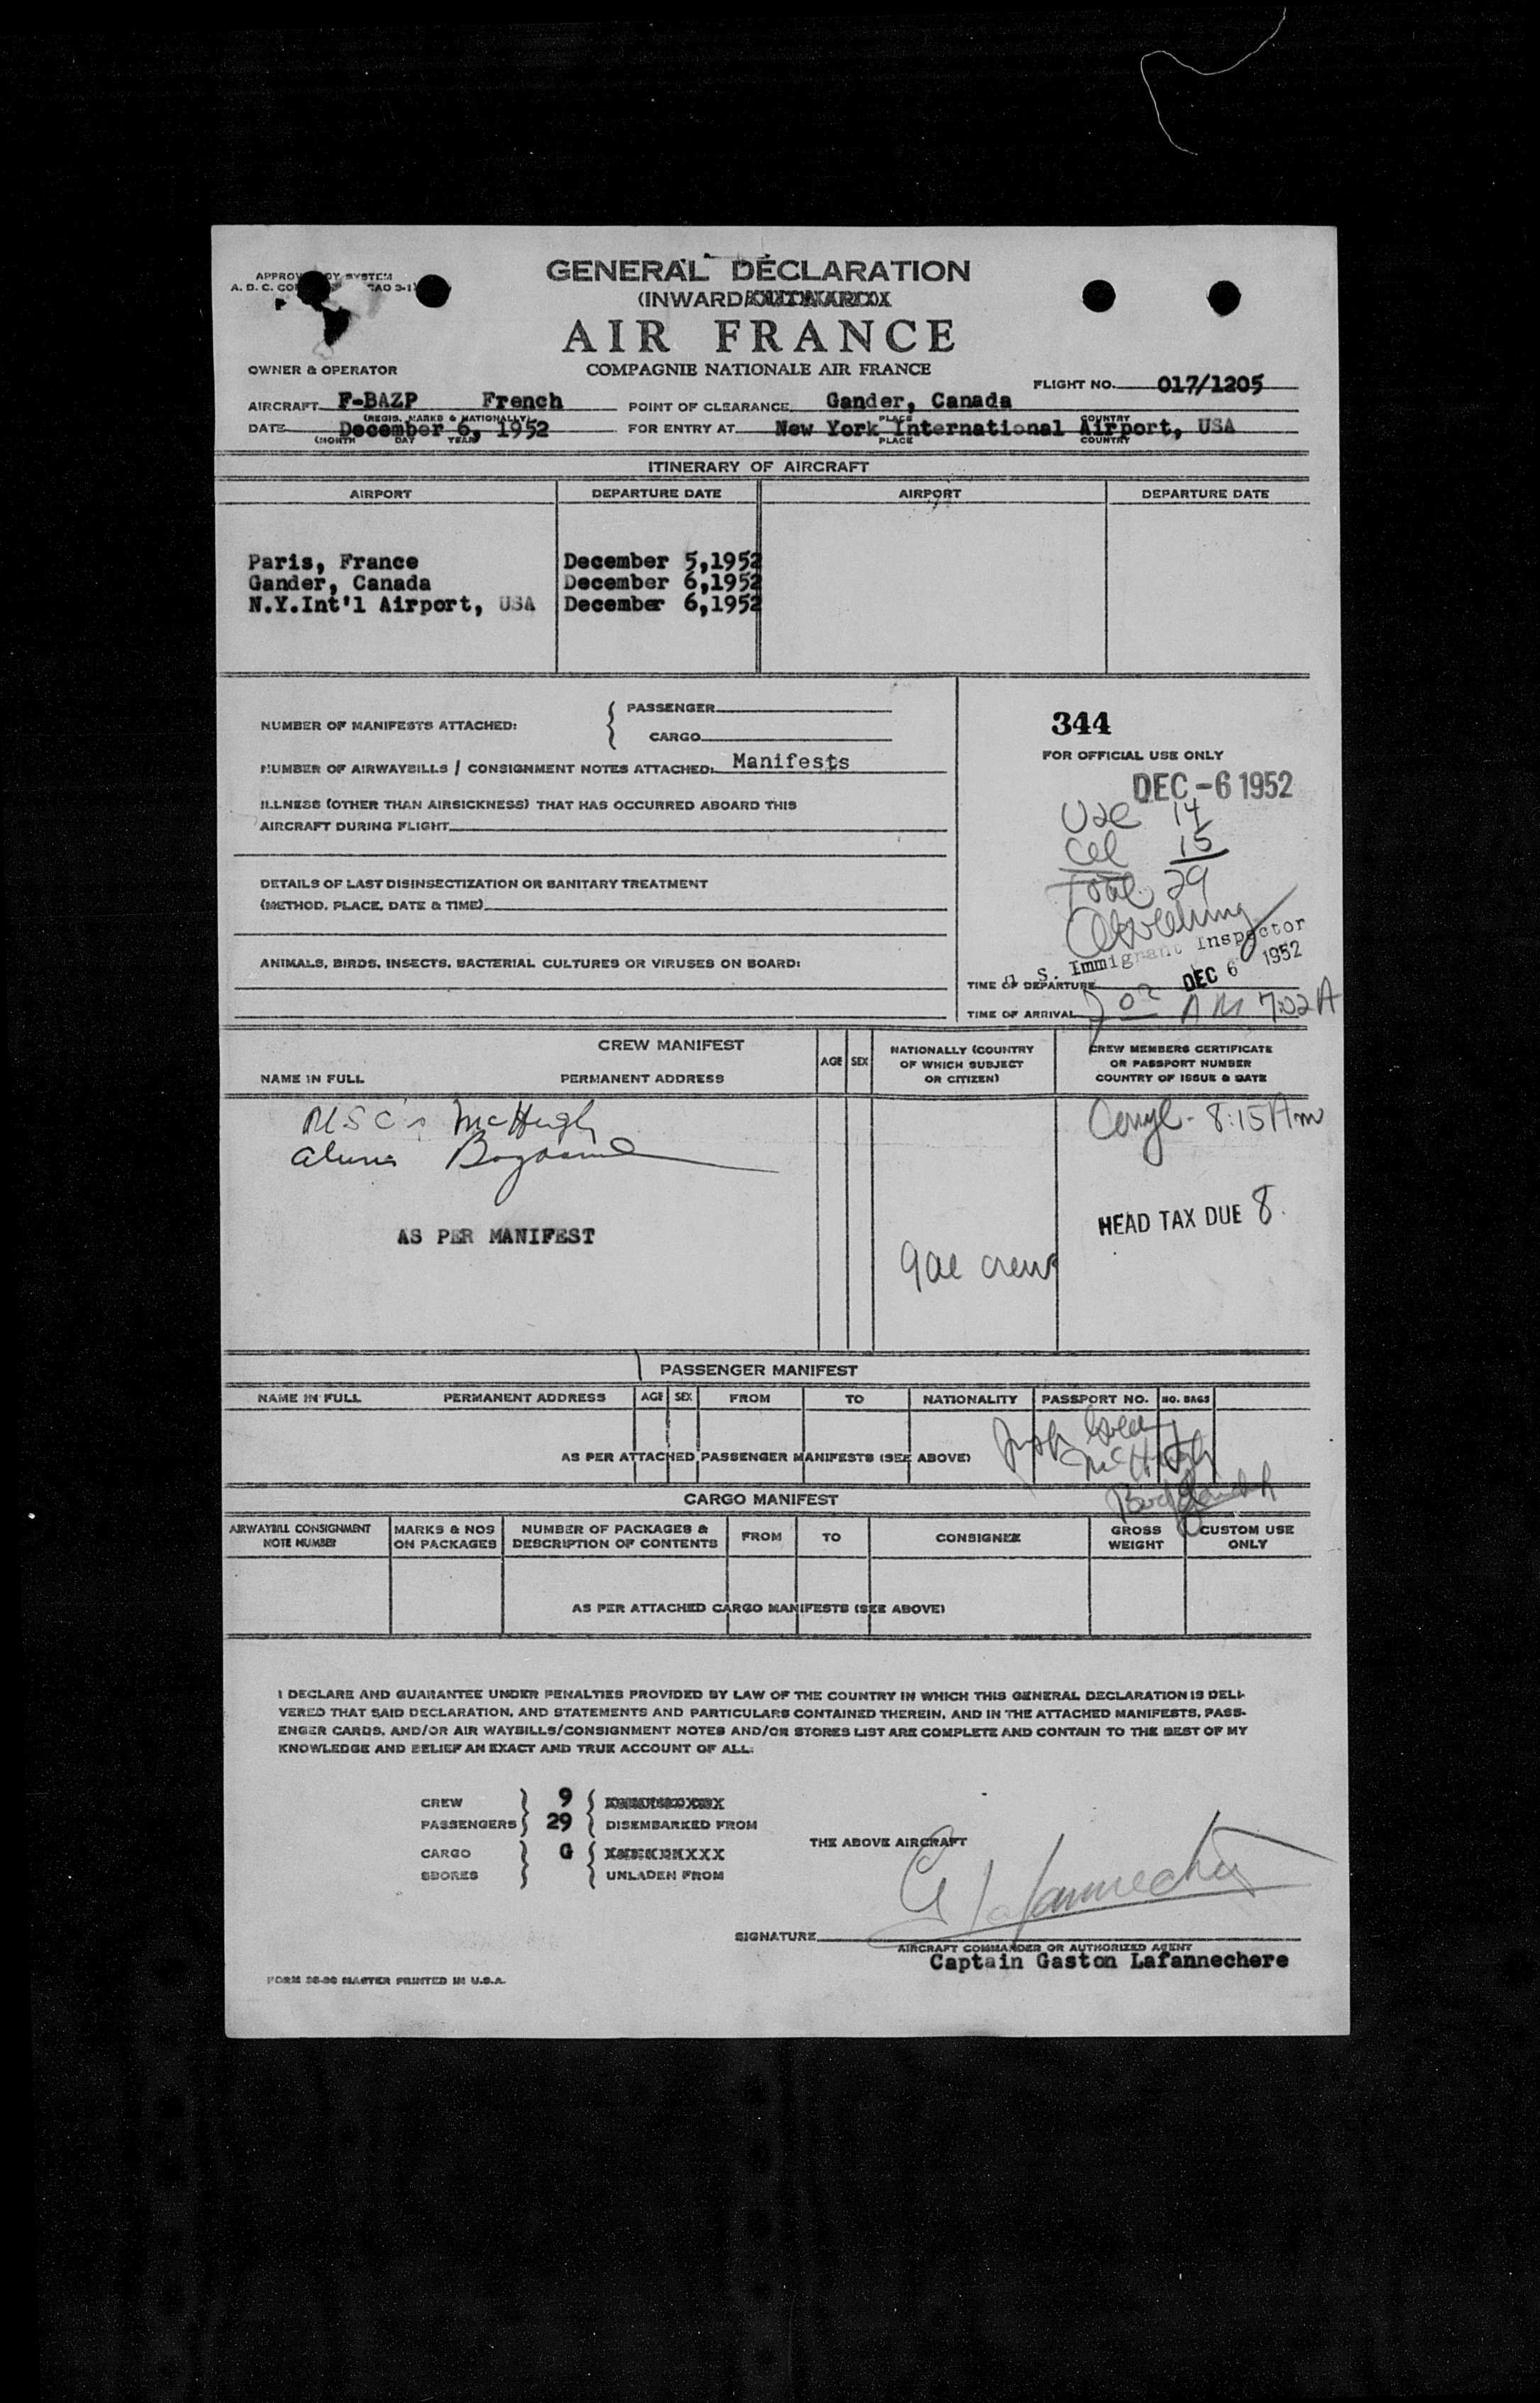 GENERAL DECLARATION
(INWARD
AIR FRANCE
COMPAGNIE NATIONALE AIR FRANCE
OWNER & OPERATOR
FLIGHT NO. 017/1205
AIRCRAFT F-BAZP French POINT OF CLEARANCE Gander, Canada
(REGIS. MARKS & NATIONALLY) PLACE COUNTRY
DATE December 6, 1952 FOR ENTRY AT New York International Airport, USA
(MONTH DAY YEAR PLACE COUNTRY
ITINERARY OF AIRCRAFT
AIRPORT DEPARTURE DATE AIRPORT DEPARTURE DATE
Paris, France December 5,1952
Gander, Canada December 6,1952
N.Y.Int'l Airport, USA December 6,1952
NUMBER OF MANIFESTS ATTACHED: { PASSENGER
CARGO
NUMBER OF AIRWAYBILLS / CONSIGNMENT NOTES ATTACHED: Manifests
ILLNESS (OTHER THAN AIRSICKNESS) THAT HAS OCCURRED ABOARD THIS
AIRCRAFT DURING FLIGHT
DETAILS OF LAST DISINSECTIZATION OR SANITARY TREATMENT
(METHOD, PLACE, DATE & TIME)
ANIMALS, BIRDS, INSECTS, BACTERIAL CULTURES OR VIRUSES ON BOARD:
344
FOR OFFICIAL USE ONLY
DEC -6 1952
14
15
Total 29
S. Immigrant Inspector
DEC 6 1952
TIME OF DEPARTURE
TIME OF ARRIVAL AM 7:02A
CREW MANIFEST AGE SEX NATIONALLY (COUNTRY OF WHICH SUBJECT OR CITIZEN) CREW MEMBERS CERTIFICATE OR PASSPORT NUMBER COUNTRY OF ISSUE & DATE
NAME IN FULL PERMANENT ADDRESS
McHugh
8:15 Am
HEAD TAX DUE 8.
AS PER MANIFEST
crew
PASSENGER MANIFEST
NAME IN FULL PERMANENT ADDRESS AGE SEX FROM TO NATIONALITY PASSPORT NO. NO. BAGS
McHugh
AS PER ATTACHED PASSENGER MANIFESTS (SEE ABOVE)
CARGO MANIFEST
AIRWAYBILL CONSIGNMENT NOTE NUMBER MARKS & NOS ON PACKAGES NUMBER OF PACKAGES & DESCRIPTION OF CONTENTS FROM TO CONSIGNEE GROSS WEIGHT CUSTOM USE ONLY
AS PER ATTACHED CARGO MANIFESTS (SEE ABOVE)
I DECLARE AND GUARANTEE UNDER PENALTIES PROVIDED BY LAW OF THE COUNTRY IN WHICH THIS GENERAL DECLARATION IS DELI-
VERED THAT SAID DECLARATION, AND STATEMENTS AND PARTICULARS CONTAINED THEREIN, AND IN THE ATTACHED MANIFESTS, PASS-
ENGER CARDS, AND/OR AIR WAYBILLS/CONSIGNMENT NOTES AND/OR STORES LIST ARE COMPLETE AND CONTAIN TO THE BEST OF MY
KNOWLEDGE AND BELIEF AN EXACT AND TRUE ACCOUNT OF ALL:
CREW 9
PASSENGERS 29 DISEMBARKED FROM
THE ABOVE AIRCRAFT
CARGO G
SBORES UNLADEN FROM
G Lafannechere
SIGNATURE
AIRCRAFT COMMANDER OR AUTHORIZED AGENT
Captain Gaston Lafannechere
MASTER PRINTED IN U.S.A.